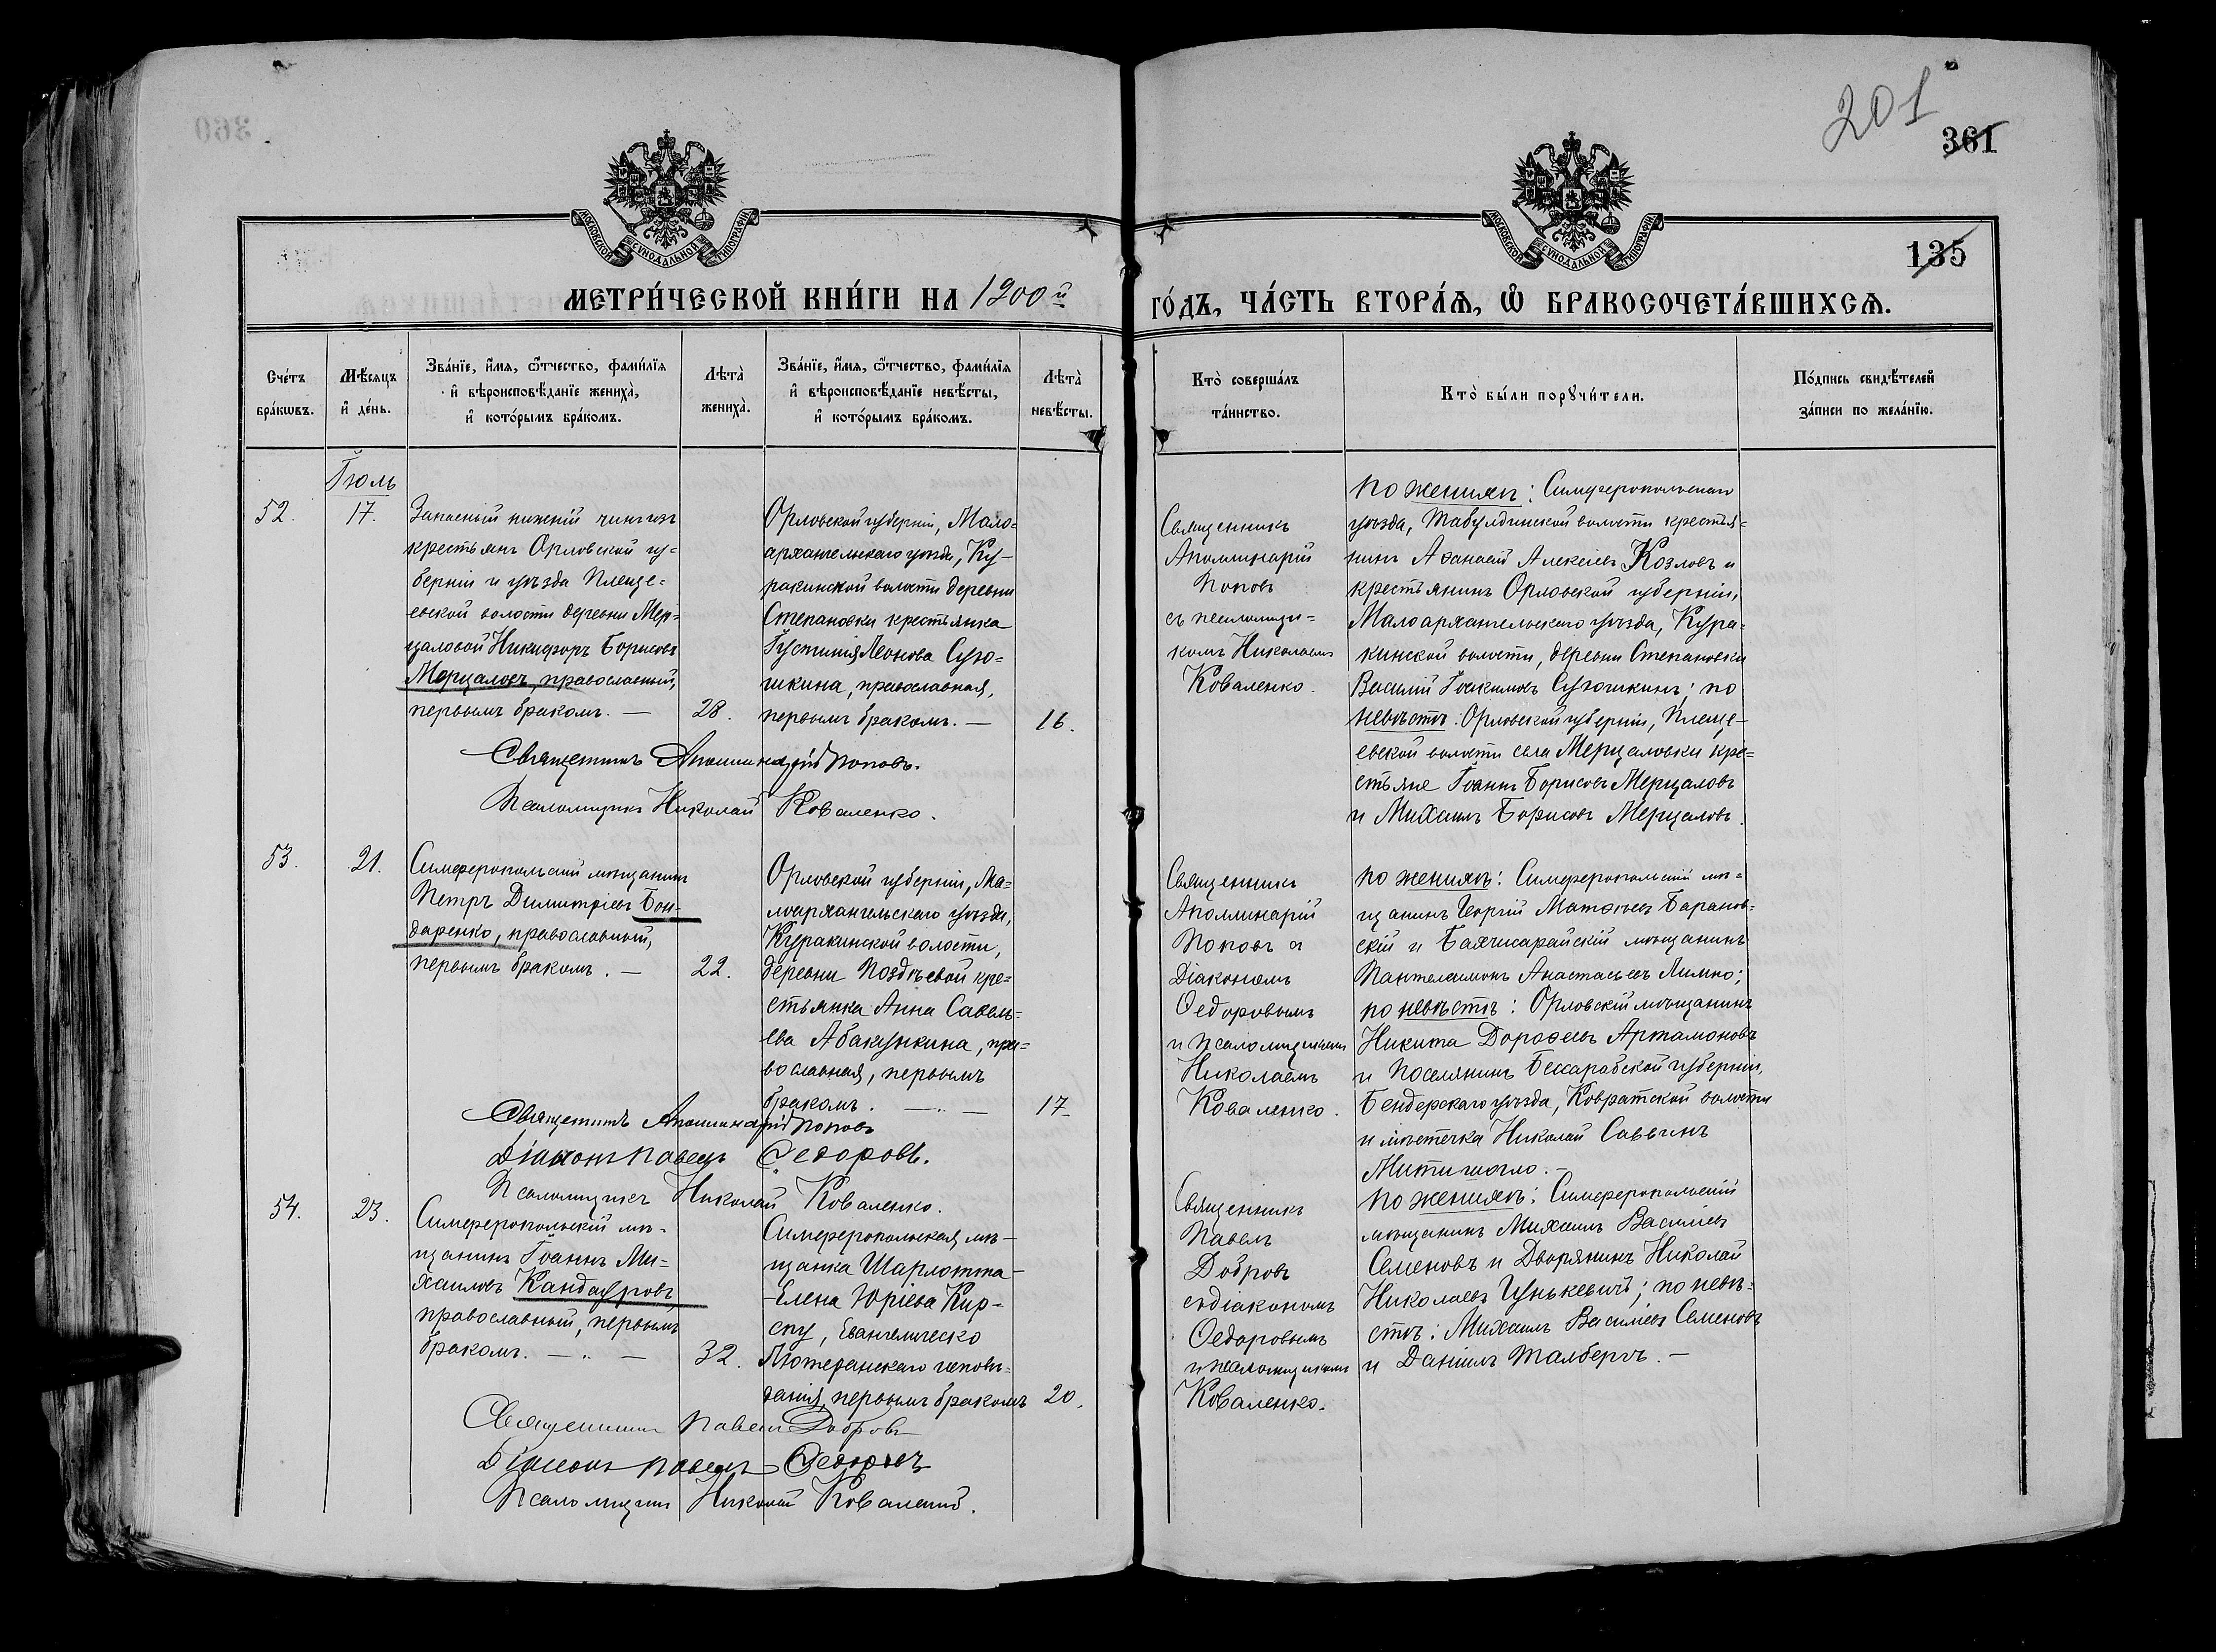 201
361
135
МОСКОВСКОЙ СѴНОДАЛЬНОЙ ТИПОГРАФІИ
МОСКОВСКОЙ СѴНОДАЛЬНОЙ ТИПОГРАФІИ
МЕТРИ́ЧЕСКОЙ КНИ́ГИ НА 1900й
ГО́ДЪ, ЧА́СТЬ ВТОРА́Я, Ѽ БРАКОСОЧЕТА́ВШИХСЯ.
Сче́тъ
бра́кѡвъ.
Мѣ́сяцъ
и҆ де́нь.
Зва́нїе, и҆́мя, ѻ҆́тчество, фами́лїя
и҆ вѣроисповѣ́данїе жениха̀,
и҆ кото́рымъ бра́комъ.
Лѣта̀
жениха̀.
Зва́нїе, и҆́мя, ѻ҆́тчество, фами́лїя
и҆ вѣроисповѣ́данїе невѣ́сты,
и҆ кото́рымъ бра́комъ.
Лѣта̀
невѣ́сты.
Кто̀ соверша́лъ
та́инство.
Кто̀ бы́ли порꙋчи́тели.
По́дпись свидѣ́телей
за́писи по жела́нїю.
Іюль
52.
17.
Запасный нижній чинъ изъ
крестьянъ Орловской гу=
берніи и уѣзда Плеще=
евской волости деревни Мер=
цаловой Никифоръ Борисовъ
Мерцаловъ, православный,
первымъ бракомъ. —
28.
Орловской губерніи, Мало=
архангельскаго уѣзда, Ку-
ракинской волости деревни
Степановки крестьянка
Іустинія Леонова Сую-
шкина, православная,
первымъ бракомъ. —
16.
Священникъ
Аполлинарій
Поповъ
съ псаломщи=
комъ Николаемъ
Коваленко.
по женихѣ: Симферопольскаго
уѣзда, Табулдинской волости крестья=
нинъ Аѳанасій Алексѣевъ Козловъ и
крестьянинъ Орловской губерніи,
Малоархангельскаго уѣзда, Кура=
кинской волости, деревни Степановки
Василій Іоакимовъ Суюшкинъ; по
невѣстѣ: Орловской губерніи, Плеще-
евской волости села Мерцаловки кре=
стьяне Іоаннъ Борисовъ Мерцаловъ
и Михаилъ Борисовъ Мерцаловъ.
Священникъ Аполлинарій Поповъ.
Псаломщикъ Николай Коваленко.
53.
21.
Симферопольскій мѣщанинъ
Петръ Димитріевъ Бон-
даренко, православный,
первымъ бракомъ. —
22.
Орловской губерніи, Ма=
лоархангельскаго уѣзда,
Куракинской волости,
деревни Поздѣевой кре=
стьянка Анна Савель=
ева Абакушкина, пра=
вославная, первымъ
бракомъ. — " —
17.
Священникъ
Аполлинарій
Поповъ съ
Діакономъ
Ѳедоровымъ
и псаломщикомъ
Николаемъ
Коваленко.
по женихѣ: Симферопольскій мѣ=
щанинъ Георгій Матѳѣевъ Баранов=
скій и Бахчисарайскій мѣщанинъ
Пантелеимонъ Анастасьевъ Лимно;
по невѣстѣ: Орловскій мѣщанинъ
Никита Дороѳеевъ Артамоновъ
и Поселянинъ Бессарабской губерніи,
Бендерскаго уѣзда, Ковратской волости
и мѣстечка Николай Саввинъ
Митишогло. —
Священникъ Аполлинарій Поповъ
Діаконъ Павелъ Ѳедоровъ.
Псаломщикъ Николай Коваленко.
54.
23.
Симферопольскій мѣ-
щанинъ Іоаннъ Ми=
хаиловъ Кандауровъ,
православный, первымъ
бракомъ. — " —
32.
Симферопольская мѣ—
щанка Шарлотта-
-Елена Юріева Кир-
спу, Евангелическо
Лютеранскаго исповѣ-
данія, первымъ бракомъ
20.
Священникъ
Павелъ
Добровъ
съ діакономъ
Ѳедоровымъ
и псаломщикомъ
Коваленко.
по женихѣ: Симферопольскій
мѣщанинъ Михаилъ Василіевъ
Семеновъ и Дворянинъ Николай
Николаевъ Цунькевичъ; по невѣ=
стѣ: Михаилъ Василіевъ Семеновъ
и Даніилъ Талбергъ. —
Священникъ Павелъ Добровъ
Діаконъ Павелъ Ѳедоровъ
Псаломщикъ Николай Коваленко.